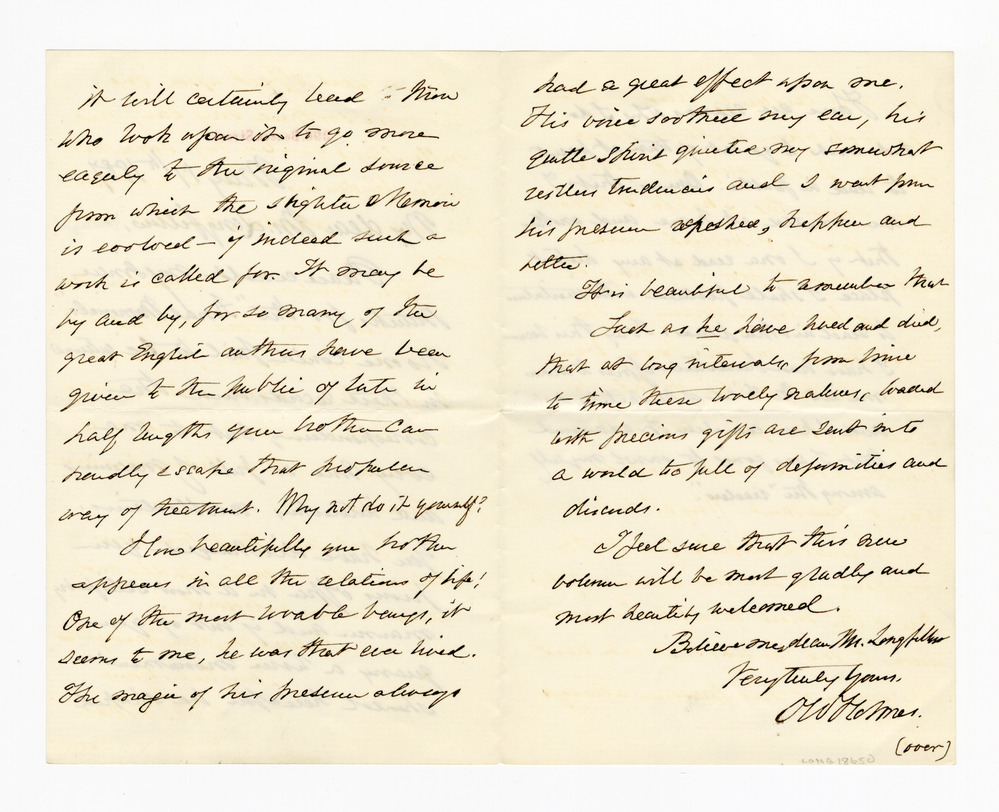 it will certainly lead those
who look upon it to go more
eagerly to the original source
from which the slighter Memoir
is evolved – if indeed such a
work is called for. It may be
by and by, for so many of the
great English authors have been
given to the public of late in
half lengths your brother can
hardly escape that popular
way of treatment. Why not do it yourself?
How beautifully your brother
appears in all the relations of life!
One of the most lovable beings, it
seems to me, he was that ever lived.
The magic of his presence always
had a great effect upon me.
His voice soothed my ear, his
gentle spirit quieted my somewhat
restless tendencies and I went from
his presence refreshed, happier and
better.
It is beautiful to remember that
such as he have lived and died,
that at long intervals, from time
to time these lovely natures, loaded
with precious gifts are sent into
a world too full of deformities and
discords.
I feel sure that this new
volume will be most gladly and
most heartily welcomed.
Believe me, dear Mr. Longfellow
Very truly Yours.
O W Holmes.
(over)
LONG 18650